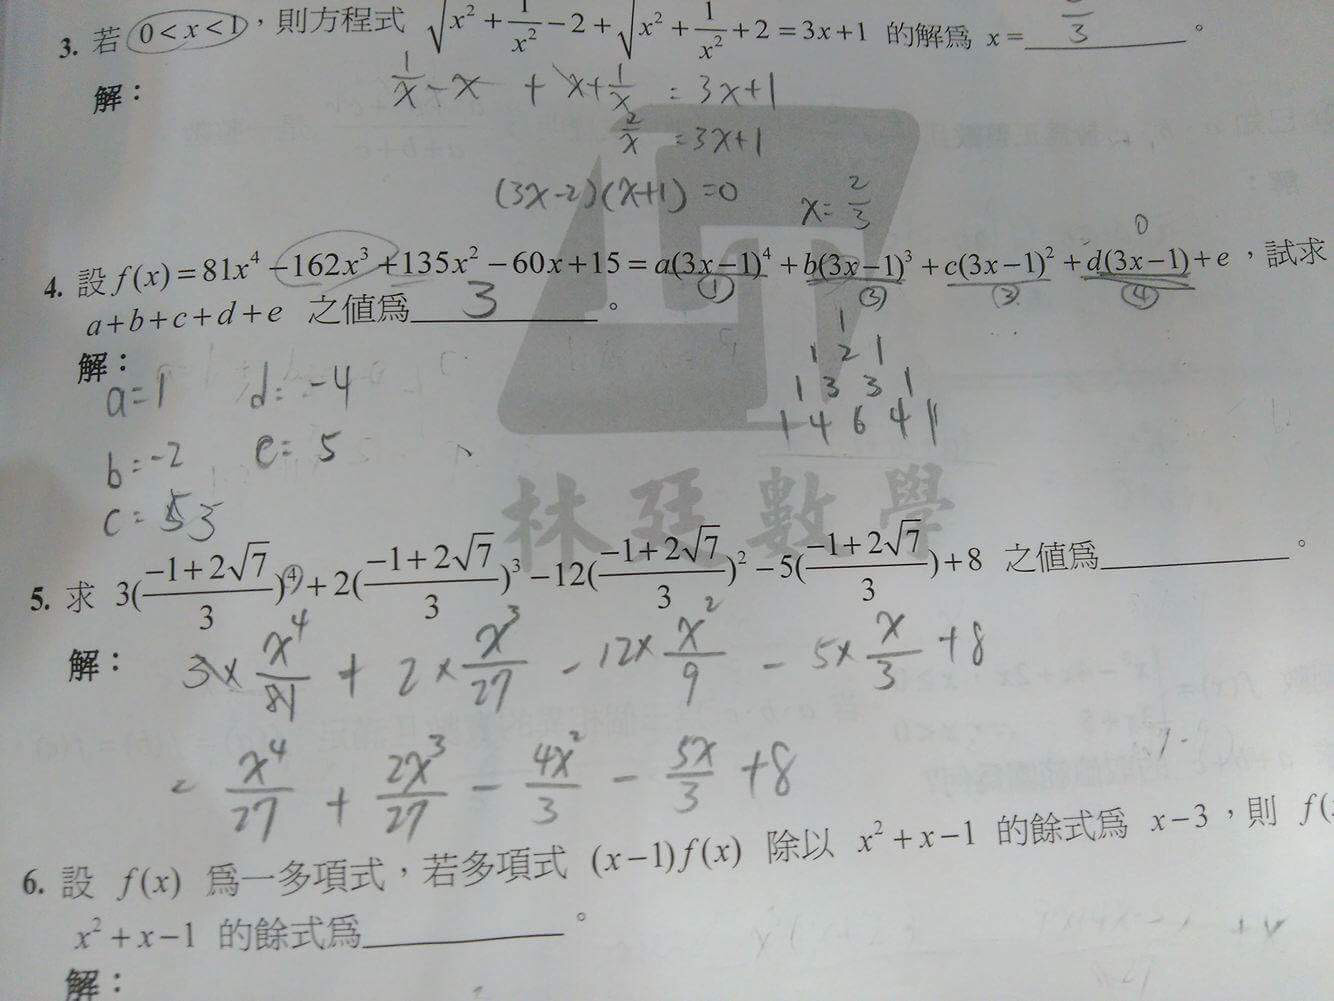 3. 若 0 < x < 1，則方程式 √(x² + 1/x² − 2) + √(x² + 1/x² + 2) = 3x + 1 的解為 x = 2/3 。
解：
1/x − x + x + 1/x = 3x+1
2/x = 3x+1
(3x−2)(x+1) = 0 x = 2/3
0
4. 設 f(x) = 81x⁴ − 162x³ + 135x² − 60x + 15 = a(3x−1)⁴ + b(3x−1)³ + c(3x−1)² + d(3x−1) + e，試求
① ③ ② ④
a + b + c + d + e 之值為 3 。
解：
1
1 2 1
1 3 3 1
1 4 6 4 1
a = 1 d = −4
b = −2 e = 5
c = 3
林廷數學
5. 求 3((−1+2√7)/3)⁴ + 2((−1+2√7)/3)³ − 12((−1+2√7)/3)² − 5((−1+2√7)/3) + 8 之值為 。
解：
3 × x⁴/81 + 2 × x³/27 − 12 × x²/9 − 5 × x/3 + 8
= x⁴/27 + 2x³/27 − 4x²/3 − 5x/3 + 8
6. 設 f(x) 為一多項式，若多項式 (x−1)f(x) 除以 x² + x − 1 的餘式為 x − 3，則 f(
x² + x − 1 的餘式為 。
解：